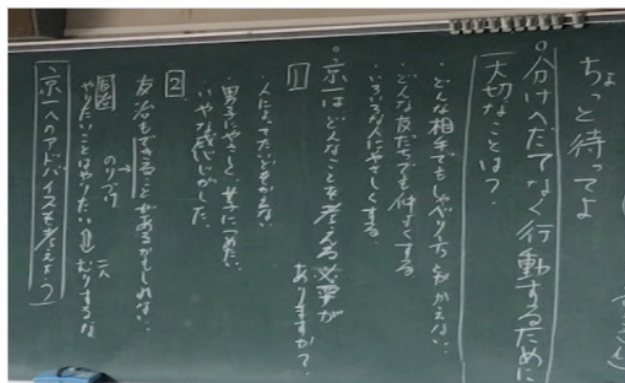 ちょっと待ってよ
○分けへだてなく行動するために
大切なことは？
・どんな相手でもしゃべり方とかかえない。
・どんな友だちでも仲よくする
・いろいろな人にやさしくする。
○京一はどんなことを考える必要が
ありますか？
1
・人によってたいどをかえない
・男子にやさしく、女子につめたい。
いやな感じがした。
2
友治もできることがあるかもしれない。
のりづけ
友治
やりたいことはやりたい⇕むりするな
二人
京一へのアドバイスを考えよう